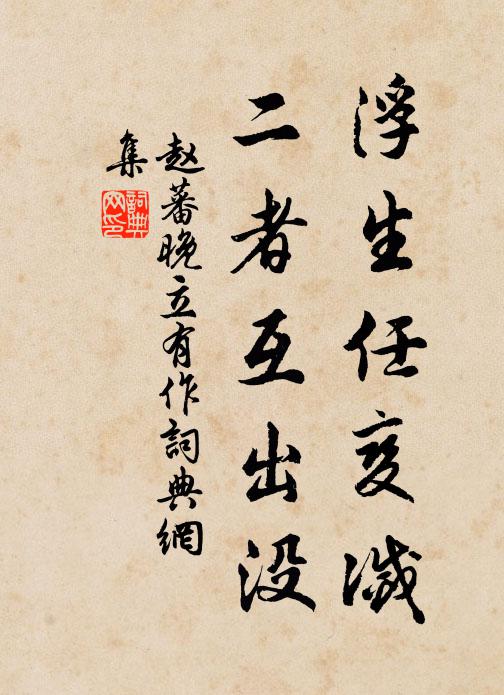 浮生任变滅
二者互出没
赵蕃晚立有作詞典網
集
詞典
网印